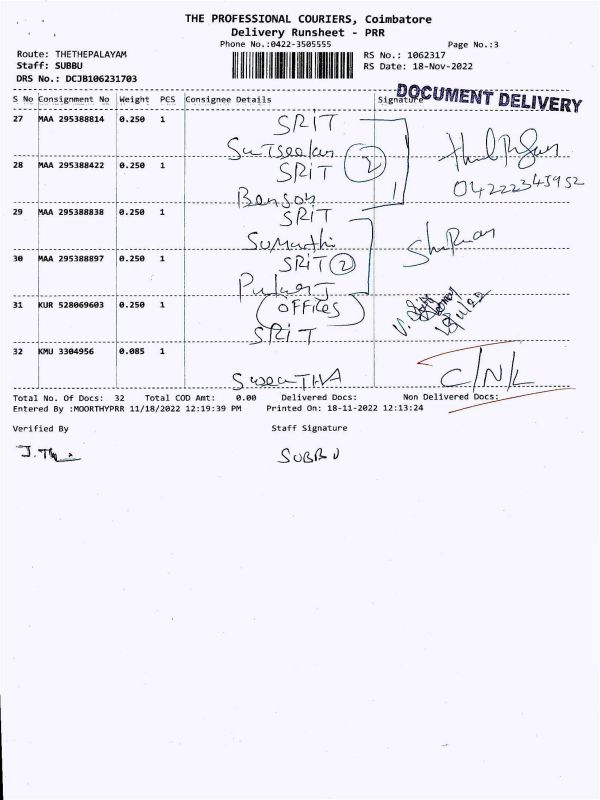 THE PROFESSIONAL COURIERS, Coimbatore
Delivery Runsheet - PRR
Phone No.:0422-3505555 Page No.:3
Route: THETHEPALAYAM RS No.: 1062317
Staff: SUBBU RS Date: 18-Nov-2022
DRS No.: DCJB106231703
DOCUMENT DELIVERY
S No Consignment No Weight PCS Consignee Details Signature
27 MAA 295388814 0.250 1 SRIT
28 MAA 295388422 0.250 1 SRIT 2
04222345952
Benson
29 MAA 295388838 0.250 1 SRIT
Sumathi
30 MAA 295388897 0.250 1 SRIT 2
31 KUR 528069603 0.250 1 (OFFICES)
SRIT
32 KMU 3304956 0.085 1
C/N/L
Total No. Of Docs: 32 Total COD Amt: 0.00 Delivered Docs: Non Delivered Docs:
Entered By :MOORTHYPRR 11/18/2022 12:19:39 PM Printed On: 18-11-2022 12:13:24
Verified By Staff Signature
SUBBU